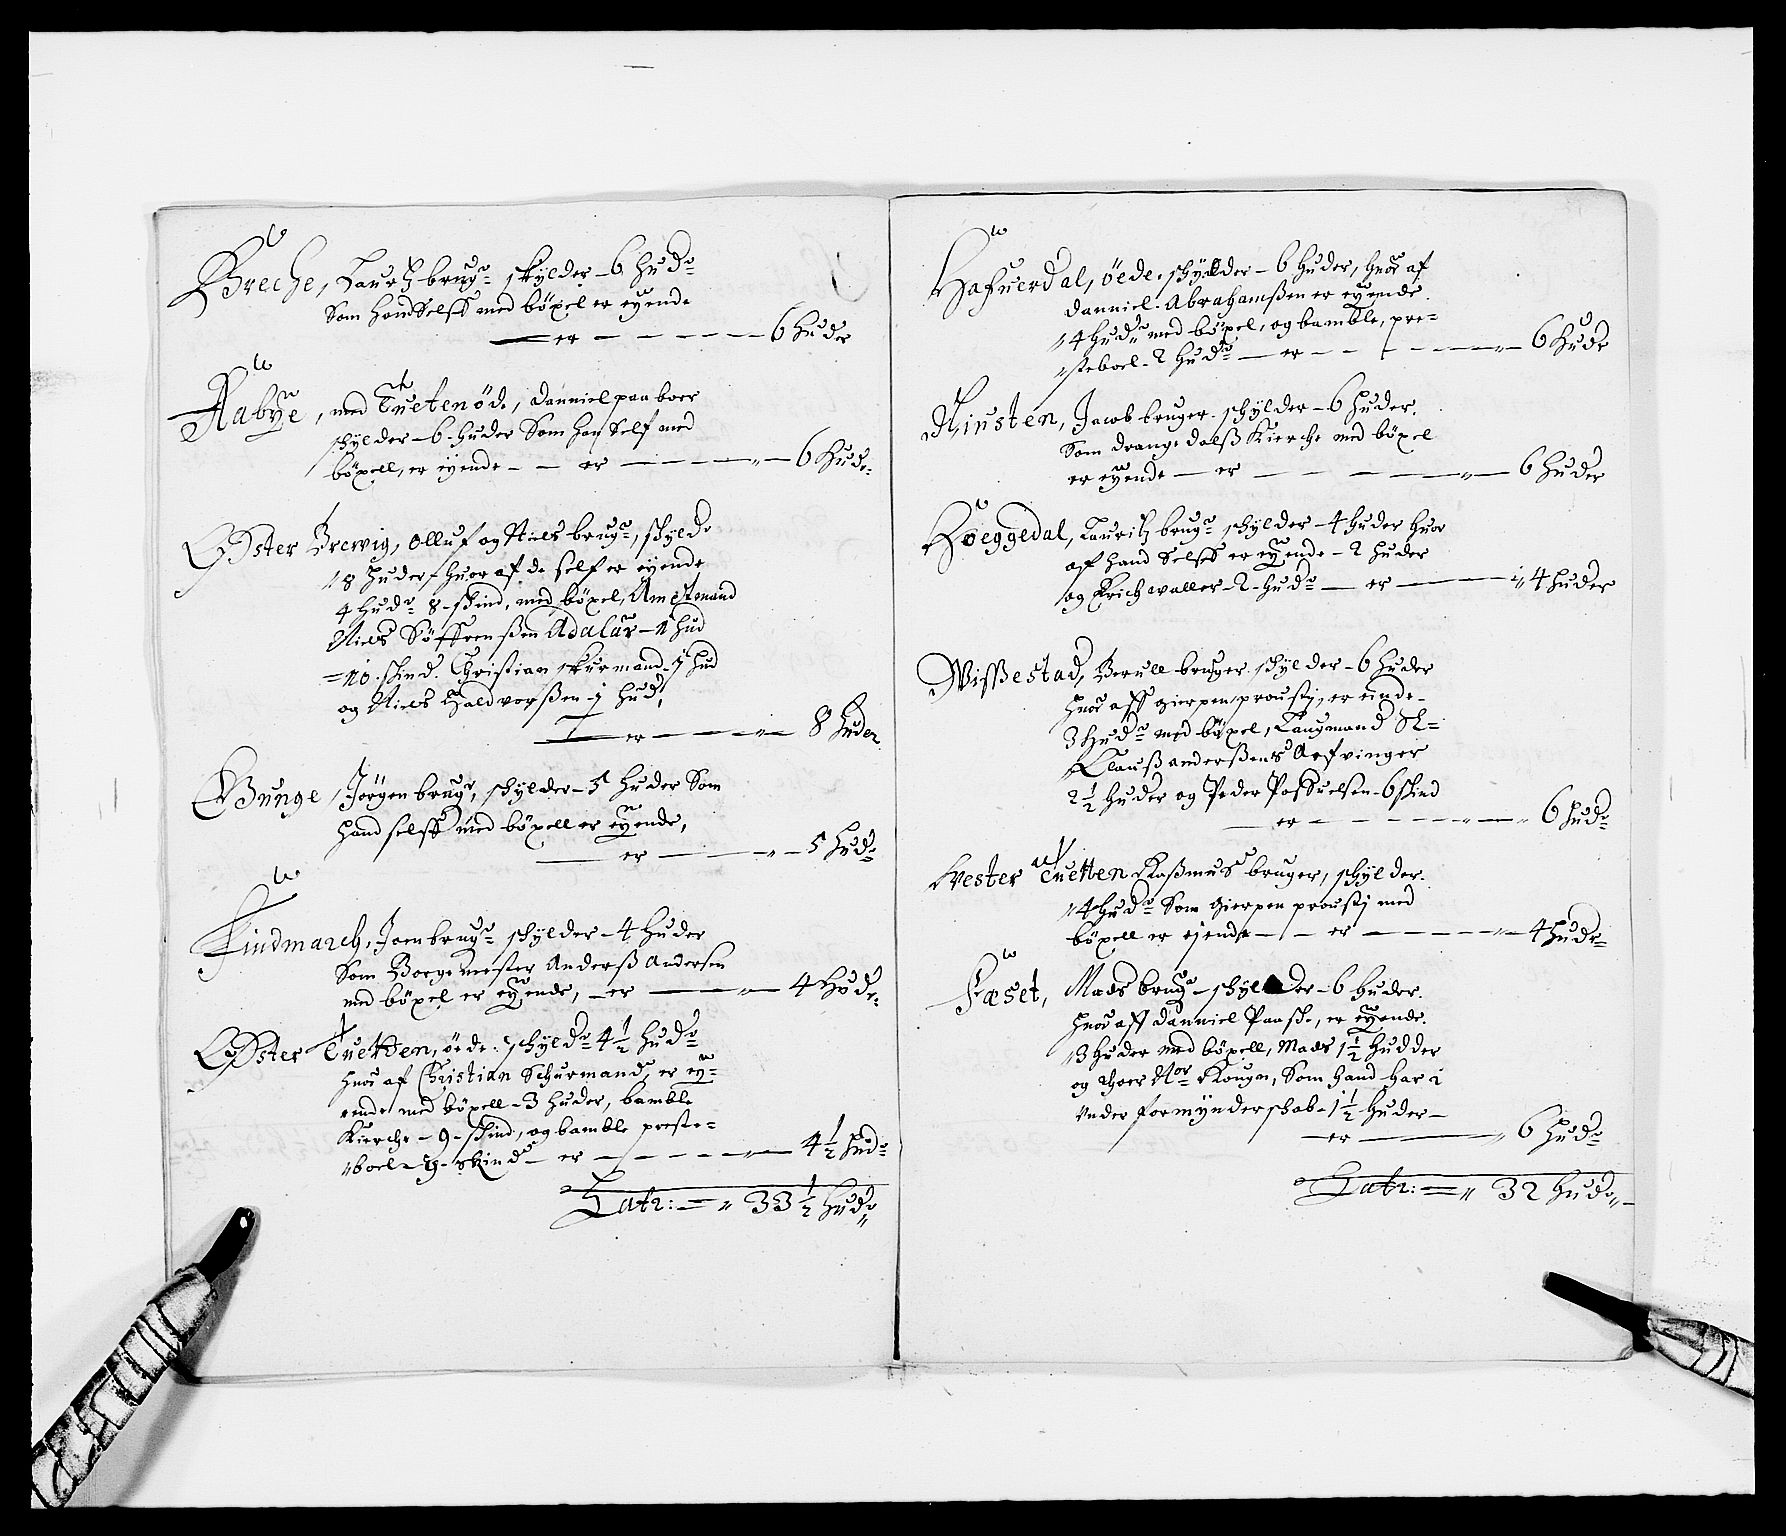 Breche, Lauritz brugr. skylder - 6 hudr
Som hand Selff med böxel er eyende
er - 6 huder
Aabye, med Tueten öde, danniel paa boer
schylder - 6 - huder Som han Self med
böxell, er eyende - er - 6 Hude:
Öster Brevig, Olluf og Niels brugr, skylde
8 huder huor af de self er eyende
4 hudr 8 - skind, med böxel, Ambtmand
Niels Söffrenssen Adalär - 1 hud
= 10 skind. Christian skurmand - 1 hud
og Niels Haldvorssen - 1 hud,
er - 8 huder
Bunge, Jörgen brugr, schylder - 5 huder Som
hand selff med böxell er eyende,
er - 5 hudr
Findmarch, Joen brugr schylder - 4 huder
Som Borgemester Anderss Andersen
med böxel er eyende, - er - 4 Hude:
Öster Tuetten, öede: schyldr 4 1/2 hudr
huor af Christian Schurmand, er ey=
ende med böxell - 3 huder, bamble
Kierche - 9 - skind, og bamble preste=
boel - 9 - skind - er - 4 1/2 hudr
Latr: = 33 1/2 hudr
Hafuerdal, öede. schylder - 6 huder, huor af
danniel Abrahamssen er eyende
4 hudr med böxel, og bamble, pre=
steboel - 2 hudr - er - 6 Hude
Niusten, Jacob bruger. schylder - 6 huder.
Som drangedalss Kierche med böxel
er eyende - er - 6 huder
Höeggedal, Lauritz brugr schylder - 4 huder huor
af hand Selff er eyende - 2 huder
og Erich waller - 2 - hudr - er - 4 huder
Wissestad, Berull bruger schylder - 6 huder
huor aff gierpen proustj, er einde -
3 hudr med böxel, Laugmand Sl=
Clauss anderssens Arfvinger
2 1/2 huder og Peder Possuelsen - 6 skind
er - 6 hudr
Wester Tuetten Rassmus bruger, schylder.
4 hudr Som gierpen proustj med
böxell er ejende - er - 4 hudr
Faset, Mads brugr - schylder - 6 huder.
huor aff danniel Paasche, er eyende.
3 huder med böxell, Mads 1 1/2 hudder
og Thoer Kougen, Som hand har i
vnder formynderschab - 1 1/2 huder -
er - 6 hudr
Latr: = 32 hudr